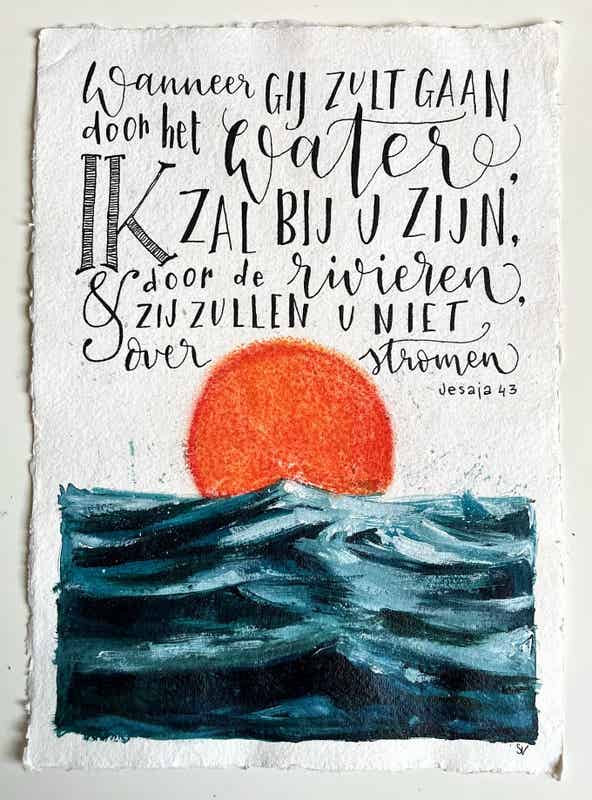 Wanneer GIJ ZULT GAAN
door het Water,
IK ZAL BIJ U ZIJN,
& door de rivieren,
ZIJ ZULLEN U NIET
over stromen
Jesaja 43
SV